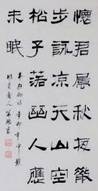 懷君屬秋夜散
步詠涼天山空
松子落幽人應
未眠